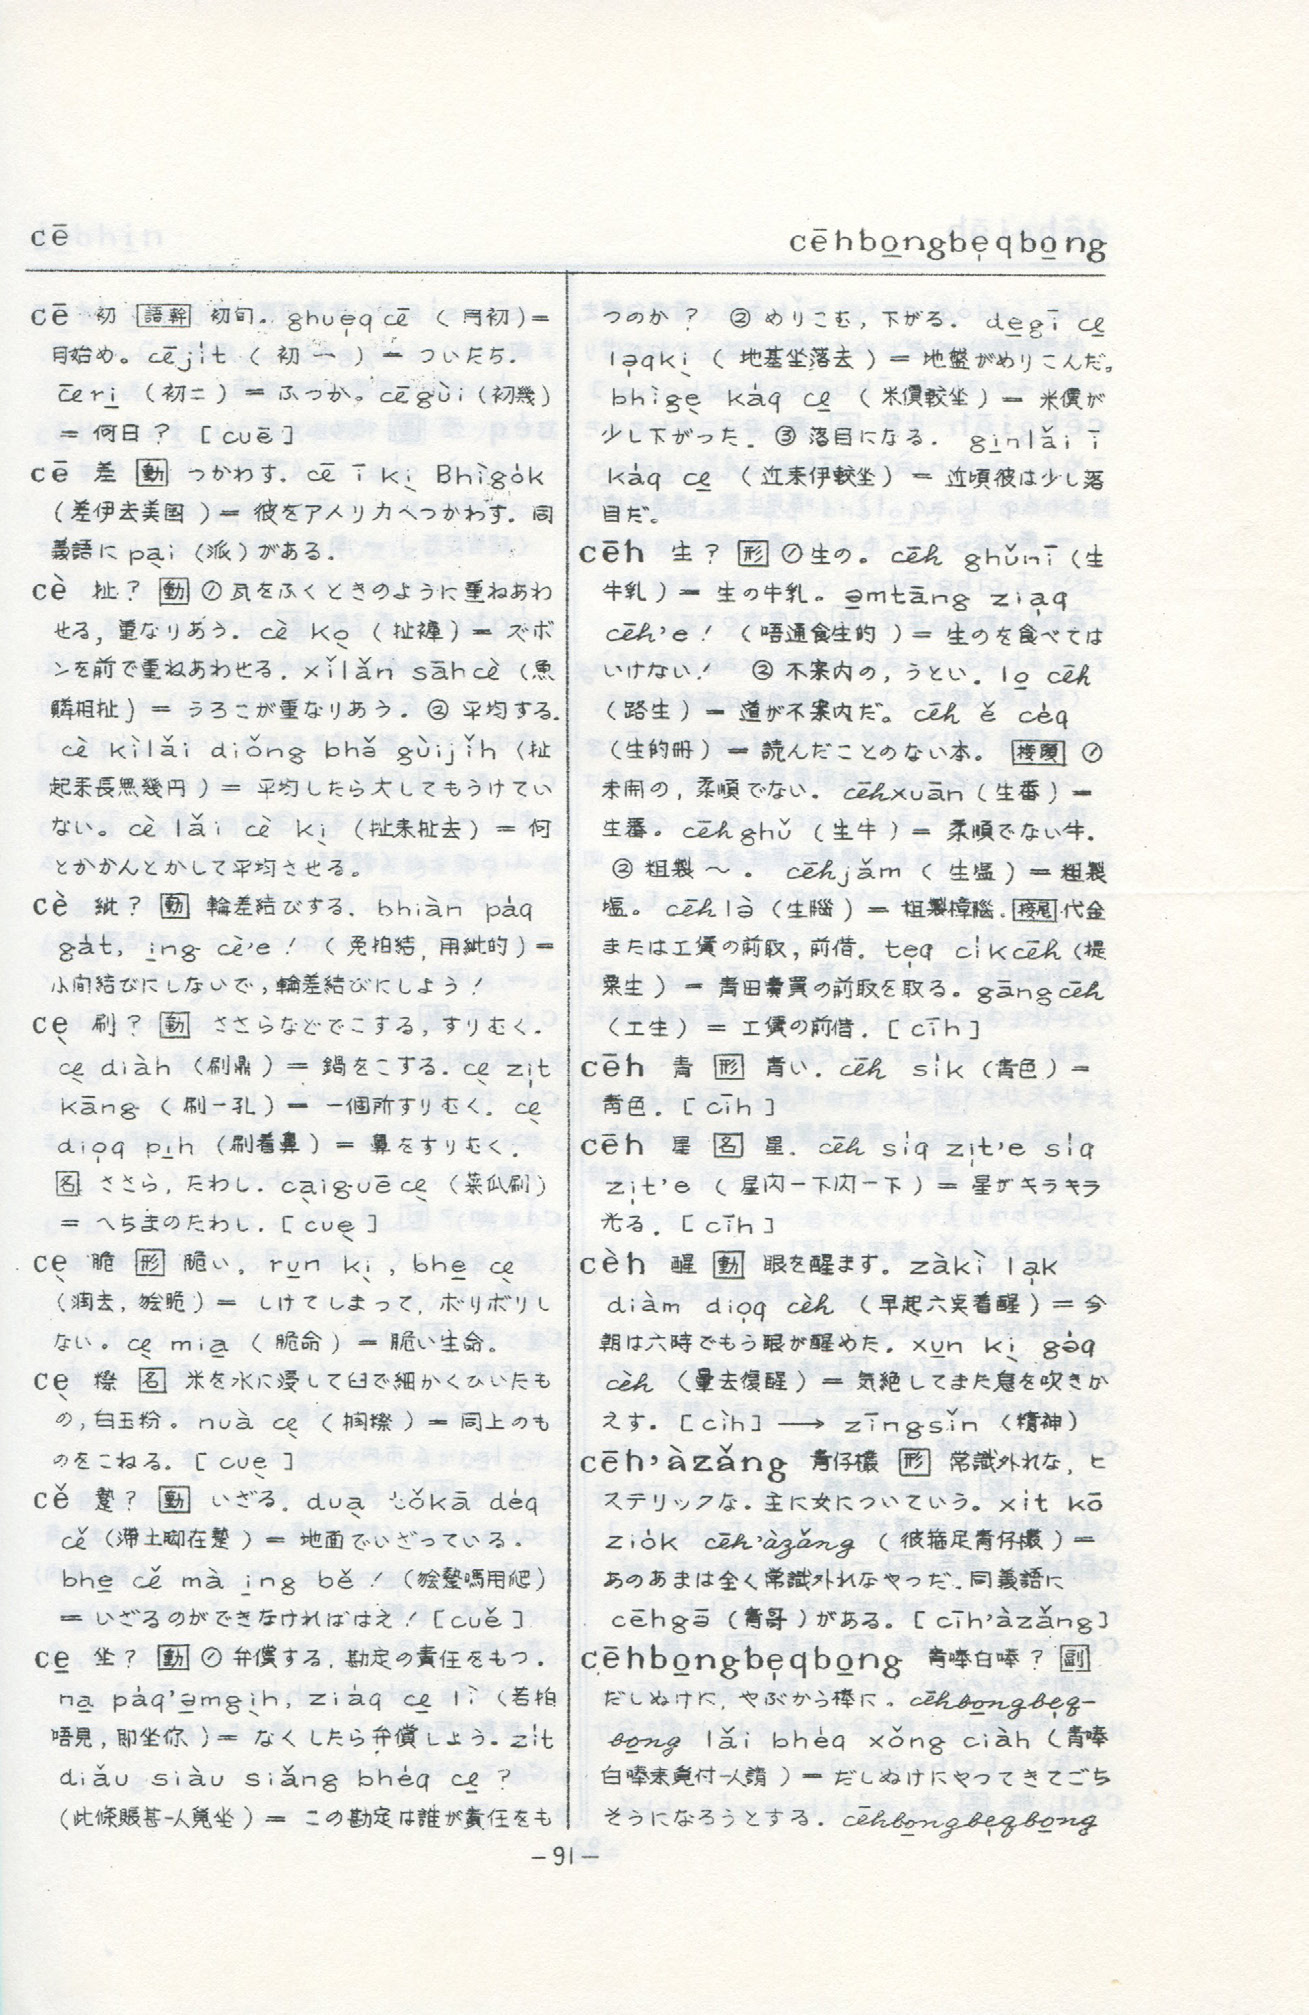 cē
cēhbo̱ngbẹqbo̱ng
cē 初 [語幹] 初旬. ghuẹ̄q cē (月初)=
月始め。cējı̍t (初一) = ついたち.
cēri̱ (初二) = ふつか. cēgùi (初幾)
= 何日? [cuē]
cē 差 [動] つかわす. cē ī kı̣̀ Bhı̀go̍k
(差伊去美国) = 彼をアメリカへつかわす. 同
義語に pại (派) がある.
cè 扯? [動] ㋀ 瓦をふくときのように重ねあわ
せる, 重なりあう. cè kọ̀ (扯褲) = ズボ
ンを前で重ねあわせる. xǐlǎn sāhcè (魚
鱗相扯) = うろこが重なりあう. ② 平均する.
cè kìlǎi diǒng bhǎ gùijǐh (扯
起来長無幾円) = 平均したら大してもうけてい
ない. cè lǎi cè kı̣̀ (扯来扯去) = 何
とかかんとかして平均させる。
cè 紕? [動] 輪差結びする. bhiàn pa̍q
ga̍t, i̱ng cè'e! (免拍結, 用紕的) =
小間結びにしないで, 輪差結びにしよう!
cẹ̀ 刷? [動] ささらなどでこする, すりむく.
cẹ̀ diàh (刷鼎) = 鍋をこする. cẹ̀ zı̣t
kāng (刷一孔) = 一個所すりむく. cẹ̀
diọq pi̱h (刷着鼻) = 鼻をすりむく.
[名] ささら, たわし. cạ̀iguēcẹ̀ (菜瓜刷)
= へちまのたわし. [cuẹ̀]
cẹ̀ 脆 [形] 脆い. ru̱n kı̣̀, bhe̱ cẹ̀
(潤去, 𣍐脆) = しけてしまって, ボリボリし
ない. cẹ̀ mia̱ (脆命) = 脆い生命.
cẹ̀ 㯔 [名] 米を水に浸して臼で細かくひいたも
の, 白玉粉. nuà cẹ̀ = 同上のも
のをこねる. [cuẹ̀]
cě [動] いざる. duạ̀ tǒkā de̍q
cě = 地面でいざっている.
bhe̱ cě mà i̱ng bě!
= いざるのができなければはえ! [cuě]
ce̱ 坐? [動] ㋀ 弁償する, 勘定の責任をもつ.
na̱ pa̍q'ə̱mgı̣̀h, zia̍q ce̱ lì (若拍
唔見, 即坐你) = なくしたら弁償しよう. zı̍t
diǎu siàu siǎng bhe̍q ce̱?
(此條賬甚人覓坐) = この勘定は誰が責任をも
つのか? ② めりこむ, 下がる. dēgī ce̱
lạqkı̣̀ (地基坐落去) = 地盤がめりこんだ.
bhìgẹ̀ ka̍q ce̱ (米價較坐) = 米價が
少し下がった. ③ 落目になる. gi̱nlǎi ī
ka̍q ce̱ (近来伊較坐) = 近頃彼は少し落
目だ。
cēh 生? [形] ㋀ 生の. cēh ghǔnī (生
牛乳) = 生の牛乳. ə̱mtāng zia̱q
cēh'e! (唔通食生的) = 生のを食べては
いけない! ② 不案内の, うとい. lo̱ cēh
(路生) = 道が不案内だ. cēh ě ce̍q
(生的冊) = 読んだことのない本. [接頭] ㋀
未開の, 柔順でない. cēhxuān (生番) =
生番. cēhghǔ (生牛) = 柔順でない牛.
② 粗製〜. cēhjǎm (生塩) = 粗製
塩. cēhlə̀ (生腦) = 粗製樟腦. [接尾] 代金
または工賃の前取, 前借. tẹq cı̍kcēh (提
粟生) = 青田賣買の前取を取る. gāngcēh
(工生) = 工賃の前借. [cīh]
cēh 青 [形] 青い. cēh sı̍k (青色) =
青色. [cīh]
cēh 星 [名] 星. cēh sı̍q zı̣t'e sı̍q
zı̣t'e (星閃一下閃一下) = 星がキラキラ
光る. [cīh]
cèh 醒 [動] 眼を醒ます. zākì la̱k
diàm diọq cèh (早起六点着醒) = 今
朝は六時でもう眼が醒めた. xu̱n kı̣̀ gə̍q
cèh (暈去復醒) = 気絶してまた息を吹きか
えす. [cìh] ⟶ zīngsǐn (精神)
cēh'àzǎng 青仔欉 [形] 常識外れな, ヒ
ステリックな. 主に女についていう. xı̍t kō
zio̍k cēh'àzǎng (彼箍足青仔欉) =
あのあまは全く常識外れなやつだ. 同義語に
cēhgə̄ (青哥) がある. [cīh'àzǎng]
cēhbo̱ngbẹqbo̱ng 青嗙白嗙? [副]
だしぬけに, やぶから棒に. cēhbo̱ngbẹq-
bo̱ng lǎi bhe̍q xǒng ciàh (青嗙
白嗙来覓付人請) = だしぬけにやってきてごち
そうになろうとする. cēhbo̱ngbẹqbo̱ng
-91-